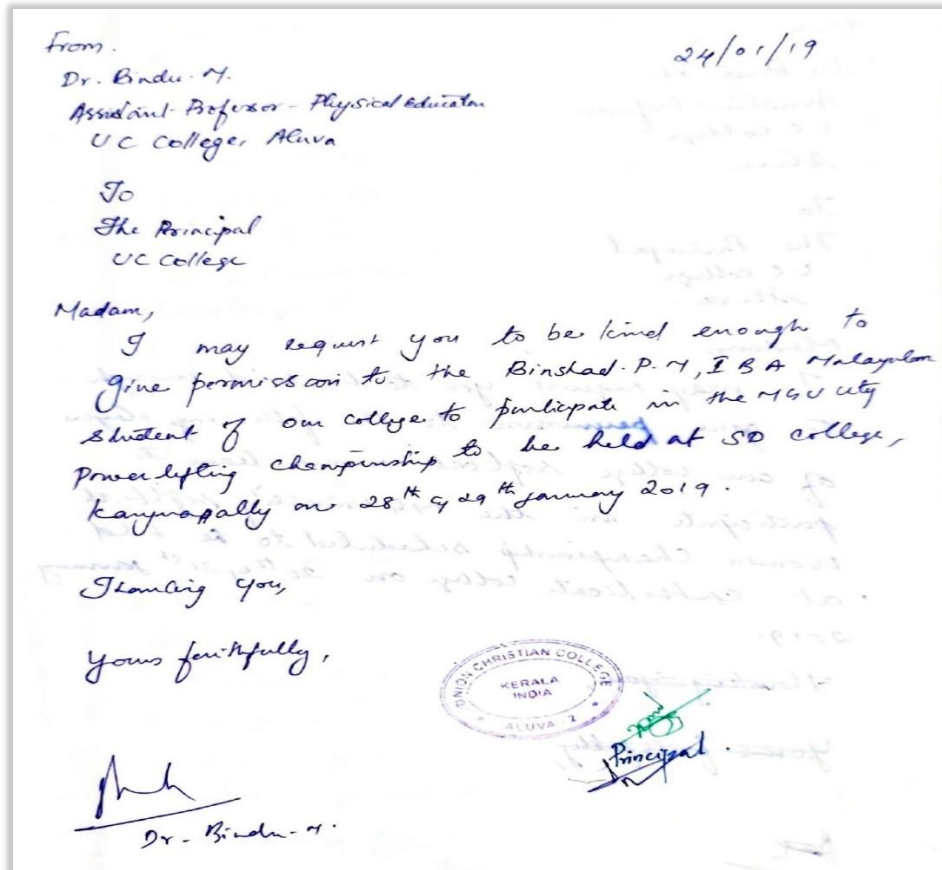 From.
24/01/19
Dr. Bindu. M.
Assistant Professor - Physical Education
UC College, Aluva
To
The Principal
UC College
Madam,
I may request you to be kind enough to
give permission to the Binshad. P. M, I B A Malayalam
student of our college to participate in the MGU
Powerlifting championship to be held at SD college,
on 28th & 29th January 2019.
Thanking you,
Yours faithfully,
UNION CHRISTIAN COLLEGE
KERALA
INDIA
ALUVA - 2
Principal.
Dr. Bindu. M.